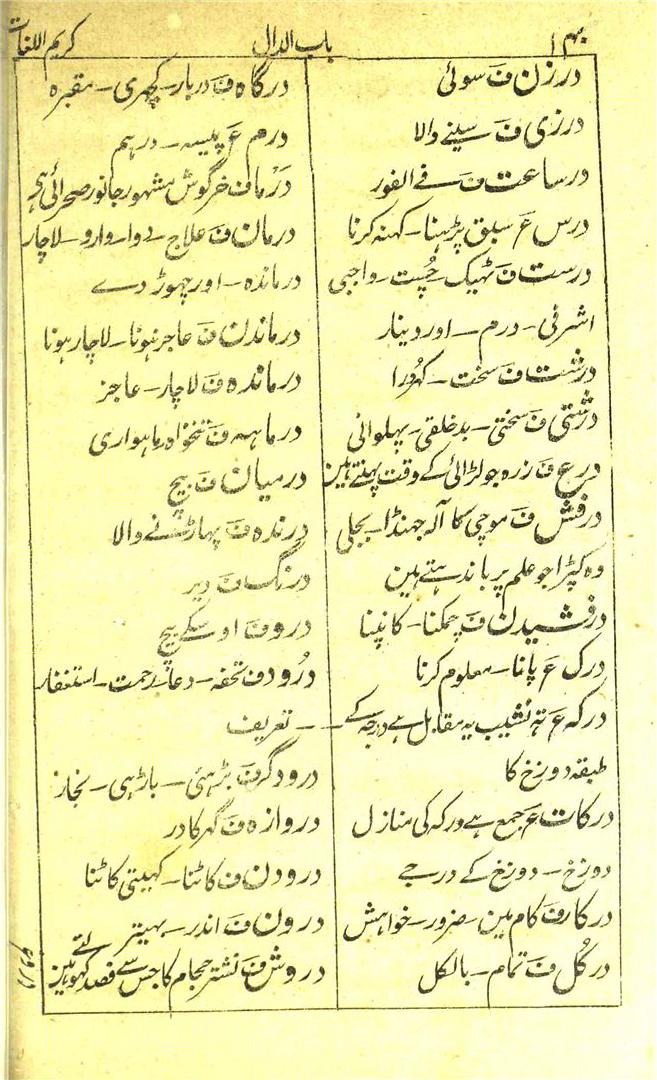 کریم اللغات
باب الدال
درزن ف سوئی
درزی ف سینے والا
درساعت ف فے الفور
درس ع سبق پڑہنا - کہنہ کرنا
درست ف ٹہیک - چُپت - واجبی
اشرفی - درم - اور دینار
درشت ف سخت - کہُردرا
درشتی ف سختی - بدخلقی - پہلوانی
درع ف زرہ جو لڑائی کے وقت پہنتے ہین
درفش ف موچی کا آلہ جہنڈا - بجلی
وہ کپڑا جو علم پر باندہتے ہین
درفشیدن ف چمکنا - کانپنا
درک ع پانا - معلوم کرنا
درکہ ع تہ نشیب یہ مقابل ہے درجہ کے
طبقہ دوزخ کا
درکات ع جمع ہے درکہ کی منازل
دوزخ - دوزخ کے درجے
درکار ف کام مین - ضرور - خواہش
درکُل ف تمام - بالکل
درگاہ ف دربار - کچہری - مقبرہ
درم ع پیسہ - درہم
دَرْمان خرگوش مشہور جانور صحرائی ہے
درمان ف علاج - دوا - دارو - لاچار
درماندہ - اور چہوڑ دے
درماندن ف عاجز ہونا - لاچار ہونا
درماندہ ف لاچار - عاجز
درماہہ ف تنخواہ ماہواری
درمیان ف بیچ
درندہ ف پہاڑنے والا
درنگ ف دیر
درو ف اوسکے بیچ
دُرُود ف تحفہ - دعا - رحمت - استغفار
تعریف
درودگر ف بڑہئی - باڑہی - نجار
دروازہ ف گہر کا در
درودن ف کاٹنا - کہیتی کاٹنا
درون ف اندر - بہیتر
دروش ف نشتر حجام کا جس سے فصد کہولتے ہین